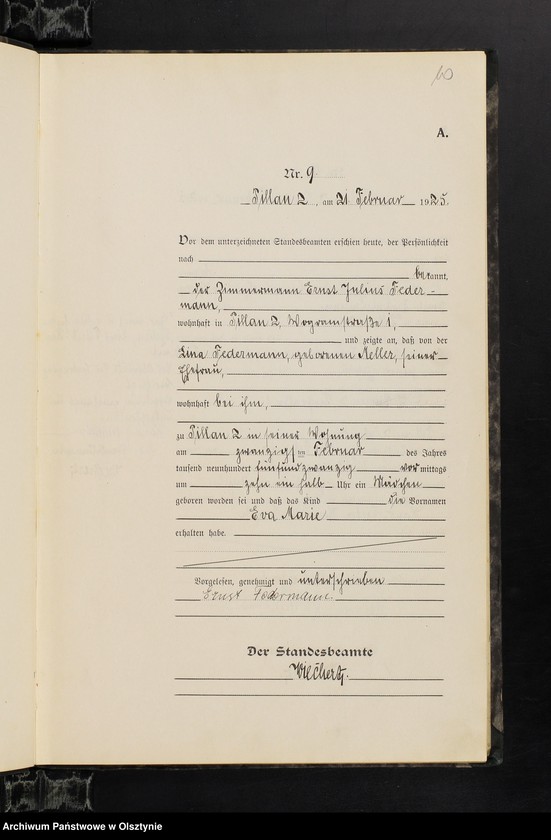 10
A.
Nr. 9
Pillau 2, am 21 Februar 1925.
Vor dem unterzeichneten Standesbeamten erschien heute, der Persönlichkeit
nach
bekannt,
der Zimmermann Ernst Julius Feder-
mann,
wohnhaft in Pillau 2, Wogramstraße 1,
und zeigte an, daß von der
Lina Federmann, geborenen Meller, seiner
Ehefrau,
wohnhaft bei ihm,
zu Pillau 2 in seiner Wohnung
am zwanzigsten Februar des Jahres
tausend neunhundert fünfundzwanzig vormittags
um zehn ein halb Uhr ein Mädchen
geboren worden sei und daß das Kind die Vornamen
Eva Marie
erhalten habe.
Vorgelesen, genehmigt und unterschrieben
Ernst Federmann
Der Standesbeamte
Archiwum Państwowe w Olsztynie